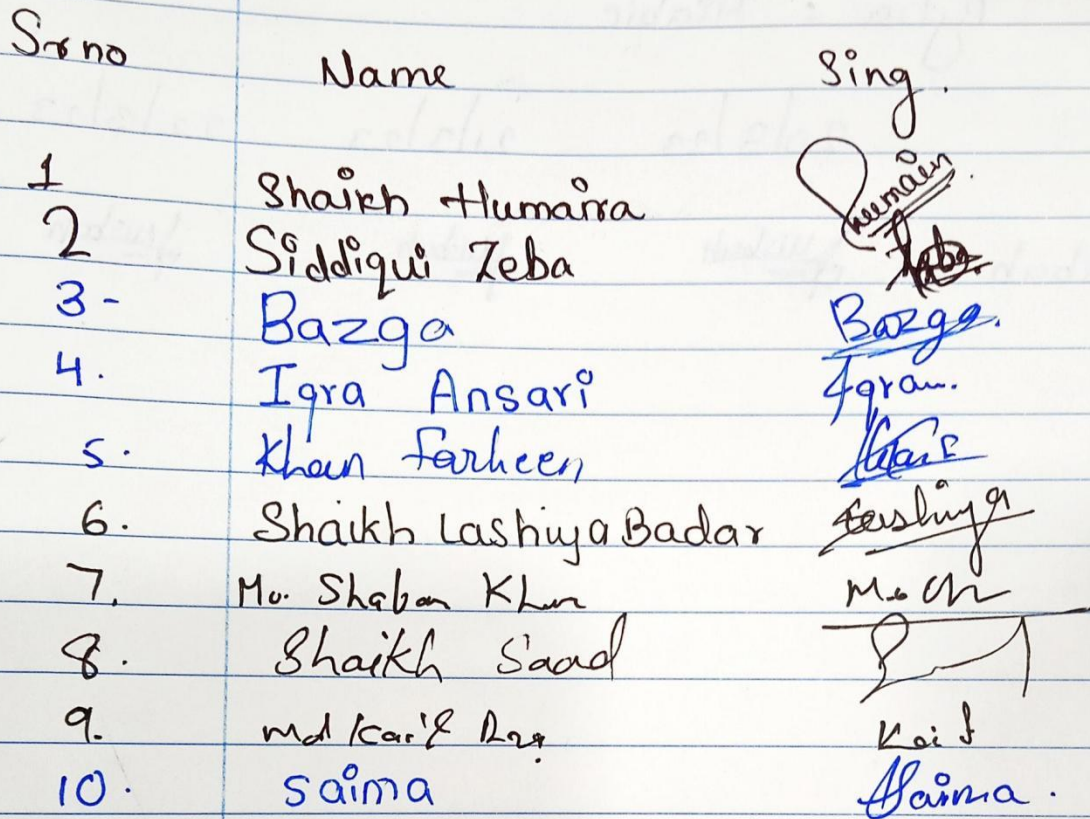 Sr no Name Sing.
1 Shaikh Humaira Heemain
2 Siddiqui Zeba Zeba
3 - Bazga Bazga.
4. Iqra Ansari Iqra
5. Khan Farheen
6. Shaikh Lashiya Badar Lashiya
7. Mo. Shaban Khan
8. Shaikh Saad
9. md Kaif Kaif
10. Saima Saima.